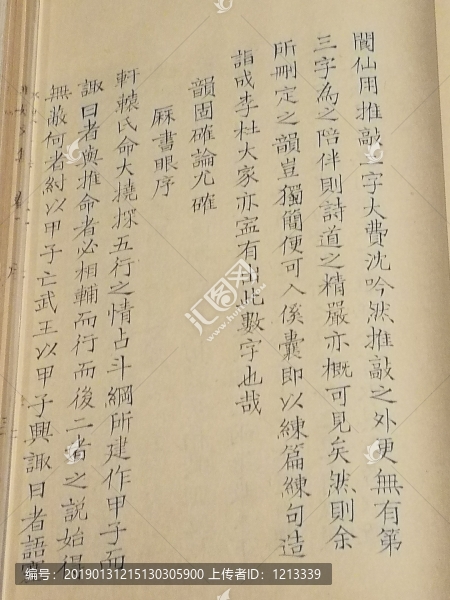 閬仙用推敲二字大費沈吟然推敲之外更無有第
三字為之陪伴則詩道之精嚴亦概可見矣然則余
所刪定之韻豈獨簡便可入傒囊即以練篇練句造
詣成李杜大家亦寍有出此數字也哉
韻固確論尤確
厤書眼序
軒轅氏命大撓探五行之情占斗綱所建作甲子而
諏日者與推命者必相輔而行而後二者之說始得
無敝何者紂以甲子亡武王以甲子興諏日者語
编号：20190131215130305900 上传者ID：1213339